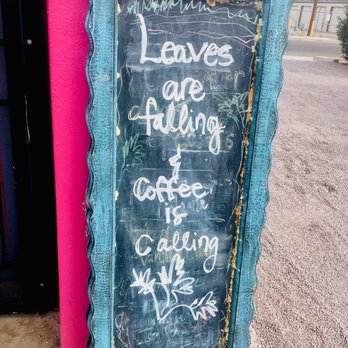 Leaves
are
falling
&
coffee
is
calling